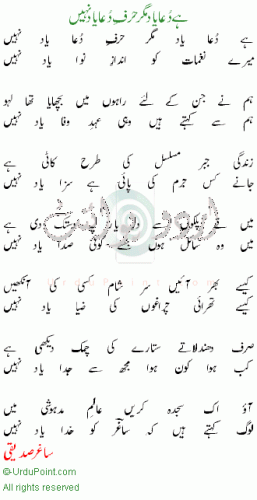 ہے دُعا یاد مگر حرفِ دُعا یاد نہیں
ہے دُعا یاد مگر حرفِ دُعا یاد نہیں
میرے نغمات کو اندازِ نوا یاد نہیں
ہم نے جن کے لئے راہوں میں بچھایا تھا لہو
ہم سے کہتے ہیں وہی عہدِ وفا یاد نہیں
زندگی جبرِ مسلسل کی طرح کاٹی ہے
جانے کس جرم کی پائی ہے سزا یاد نہیں
میں نے پلکوں سے درِ یار پہ دستک دی ہے
میں وہ سائل ہوں جسے کوئی صدا یاد نہیں
کیسے بھر آئیں سرِ شام کسی کی آنکھیں
کیسے تھرائی چراغوں کی ضیا یاد نہیں
صرف دھندلاتے ستارے کی چمک دیکھی ہے
کب ہوا کون ہوا مجھ سے جدا یاد نہیں
آؤ اک سجدہ کریں عالمِ مدہوشی میں
لوگ کہتے ہیں کہ ساغر کو خدا یاد نہیں
ساغر صدیقی
©UrduPoint.com
All rights reserved